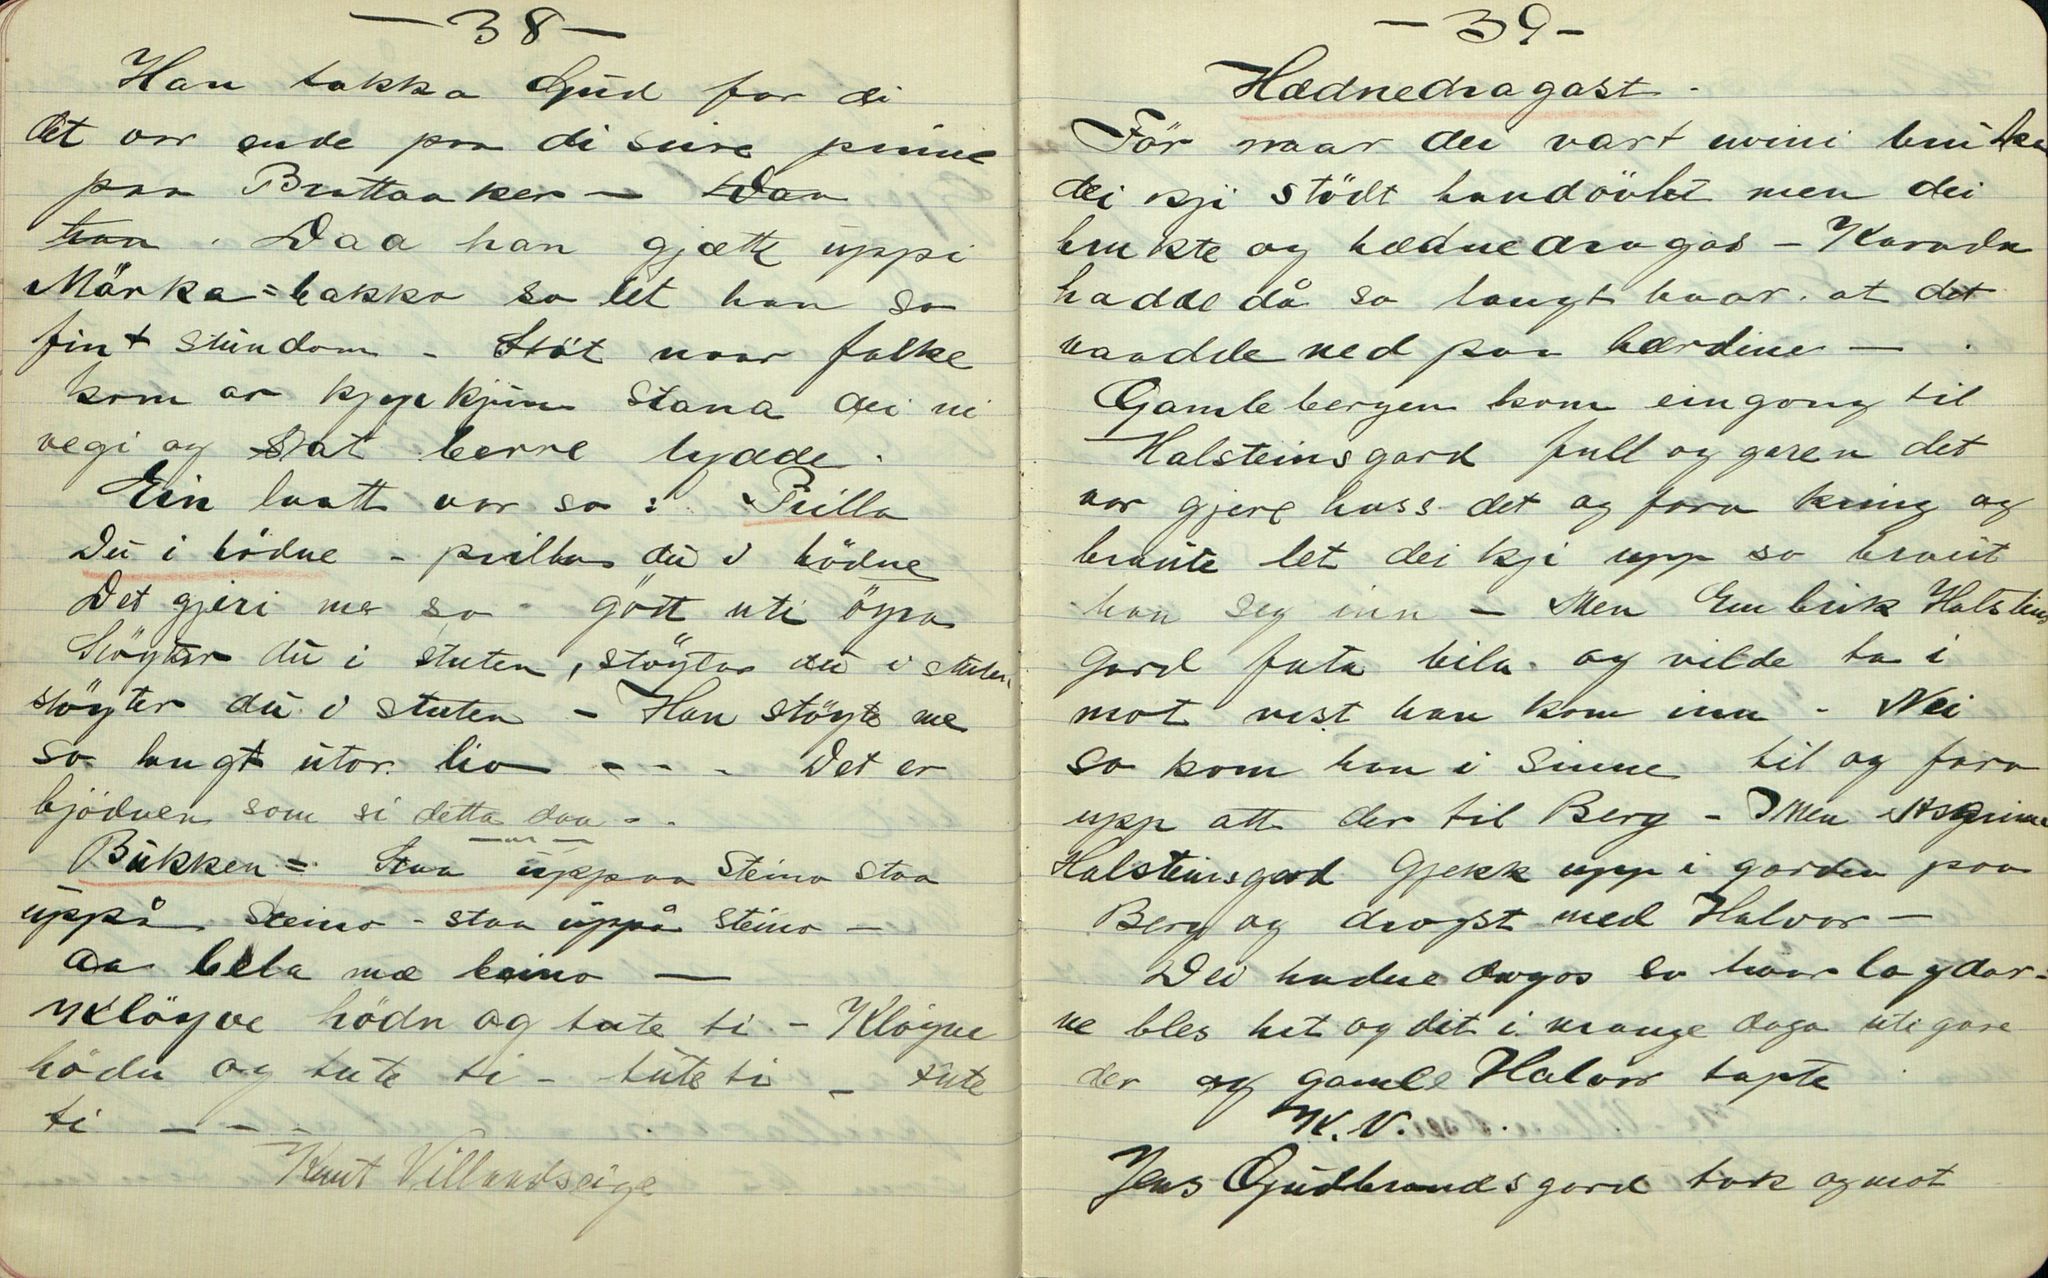 — 38 —
Han takka Gud for di
det var ende paa di sure pinne
paa Brattaaker — Daa
han . Daa han gjætte uppi
Märka=bakka so let han so
fint stundom - Stöt naar folke
kom av kjyrkjun stana dei ni
vegi og sat berre lydde.
Ein laatt var so: Prilla
Du i hödne - prilla du i hödne
Det gjeri me so gött uti öyra
Stöyter du i stuten, stöyter du i stuten
stöyter du i stuten - Han stöyte me
so langt utor lio - - - Det er
bjödnen som si detta daa - -
Bukken = Staa uppaa steino staa
uppå steino - staa uppå steino —
aa bela mæ beino —
Klöyve hödn og tute ti - Klöyve
hödn og tute ti - tute ti - tute
ti — - -
Knut Villandseige
— 39 —
Hædnedragast.
För naar dei vart uvini bruka
dei kji stödt handövlet men dei
brukte og hædnedragas - Karadn
hadde då so langt haar at det
naadde ned paa hærdine — .
Gamlebergen kom eingong til
Halsteinsgard full og garen det
var gjere hass det og fara kring og
braute let dei kji upp so braut
han seg inn — Men Embrik Halsteins
gard fata bila og vilde ta i
mot vist han kom inn - Nei
so kom han i sinne til og fara
upp att der til Berg - Men Asgrim
Halsteinsgard gjekk upp i garden paa
Berg og drogst med Halvor —
Dei hadne drogos so haar lagdar-
ne bles hit og dit i mange daga uti gare
der og gamle Halvor tapte
K. V.
Jens Gudbrandsgard tok ogmot